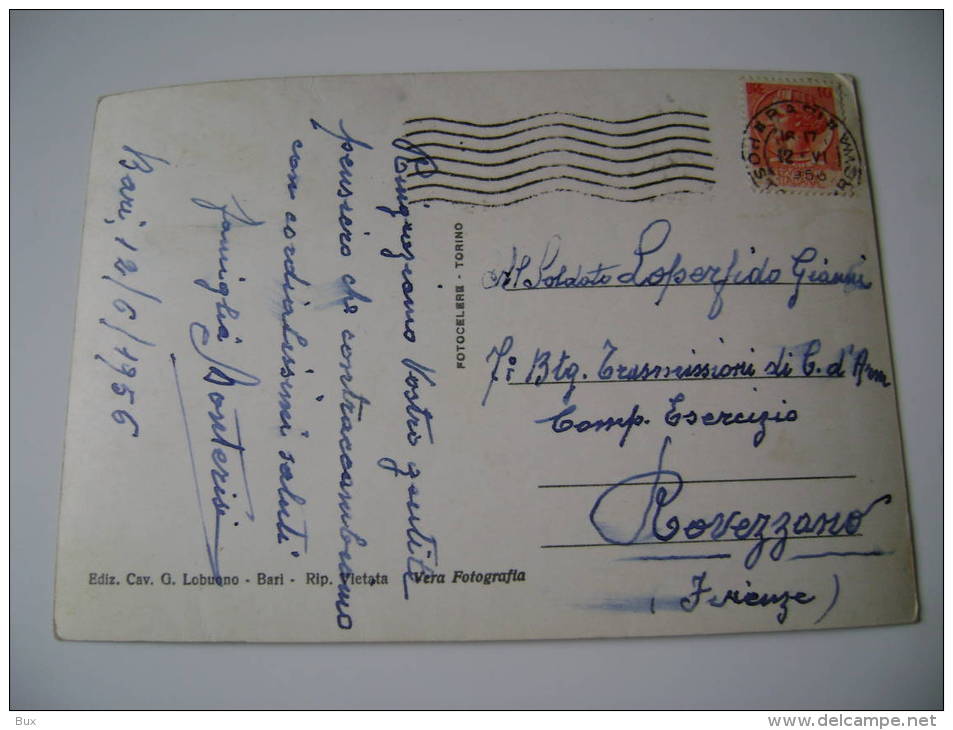 Bari, 12/6/1956
Ringraziamo Vostro gentile
pensiero che contraccambiamo
con cordialissimi saluti
famiglia
FOTOCELERE - TORINO
Al Soldato Loperfido Gianni
7º Btg. Trasmissioni di C. d'Arm
Comp. Esercizio
Rovezzano
(Firenze)
12 VI
Ediz. Cav. G. Lobuono - Bari - Rip. Vietata Vera Fotografia
Bux
www.delcampe.net